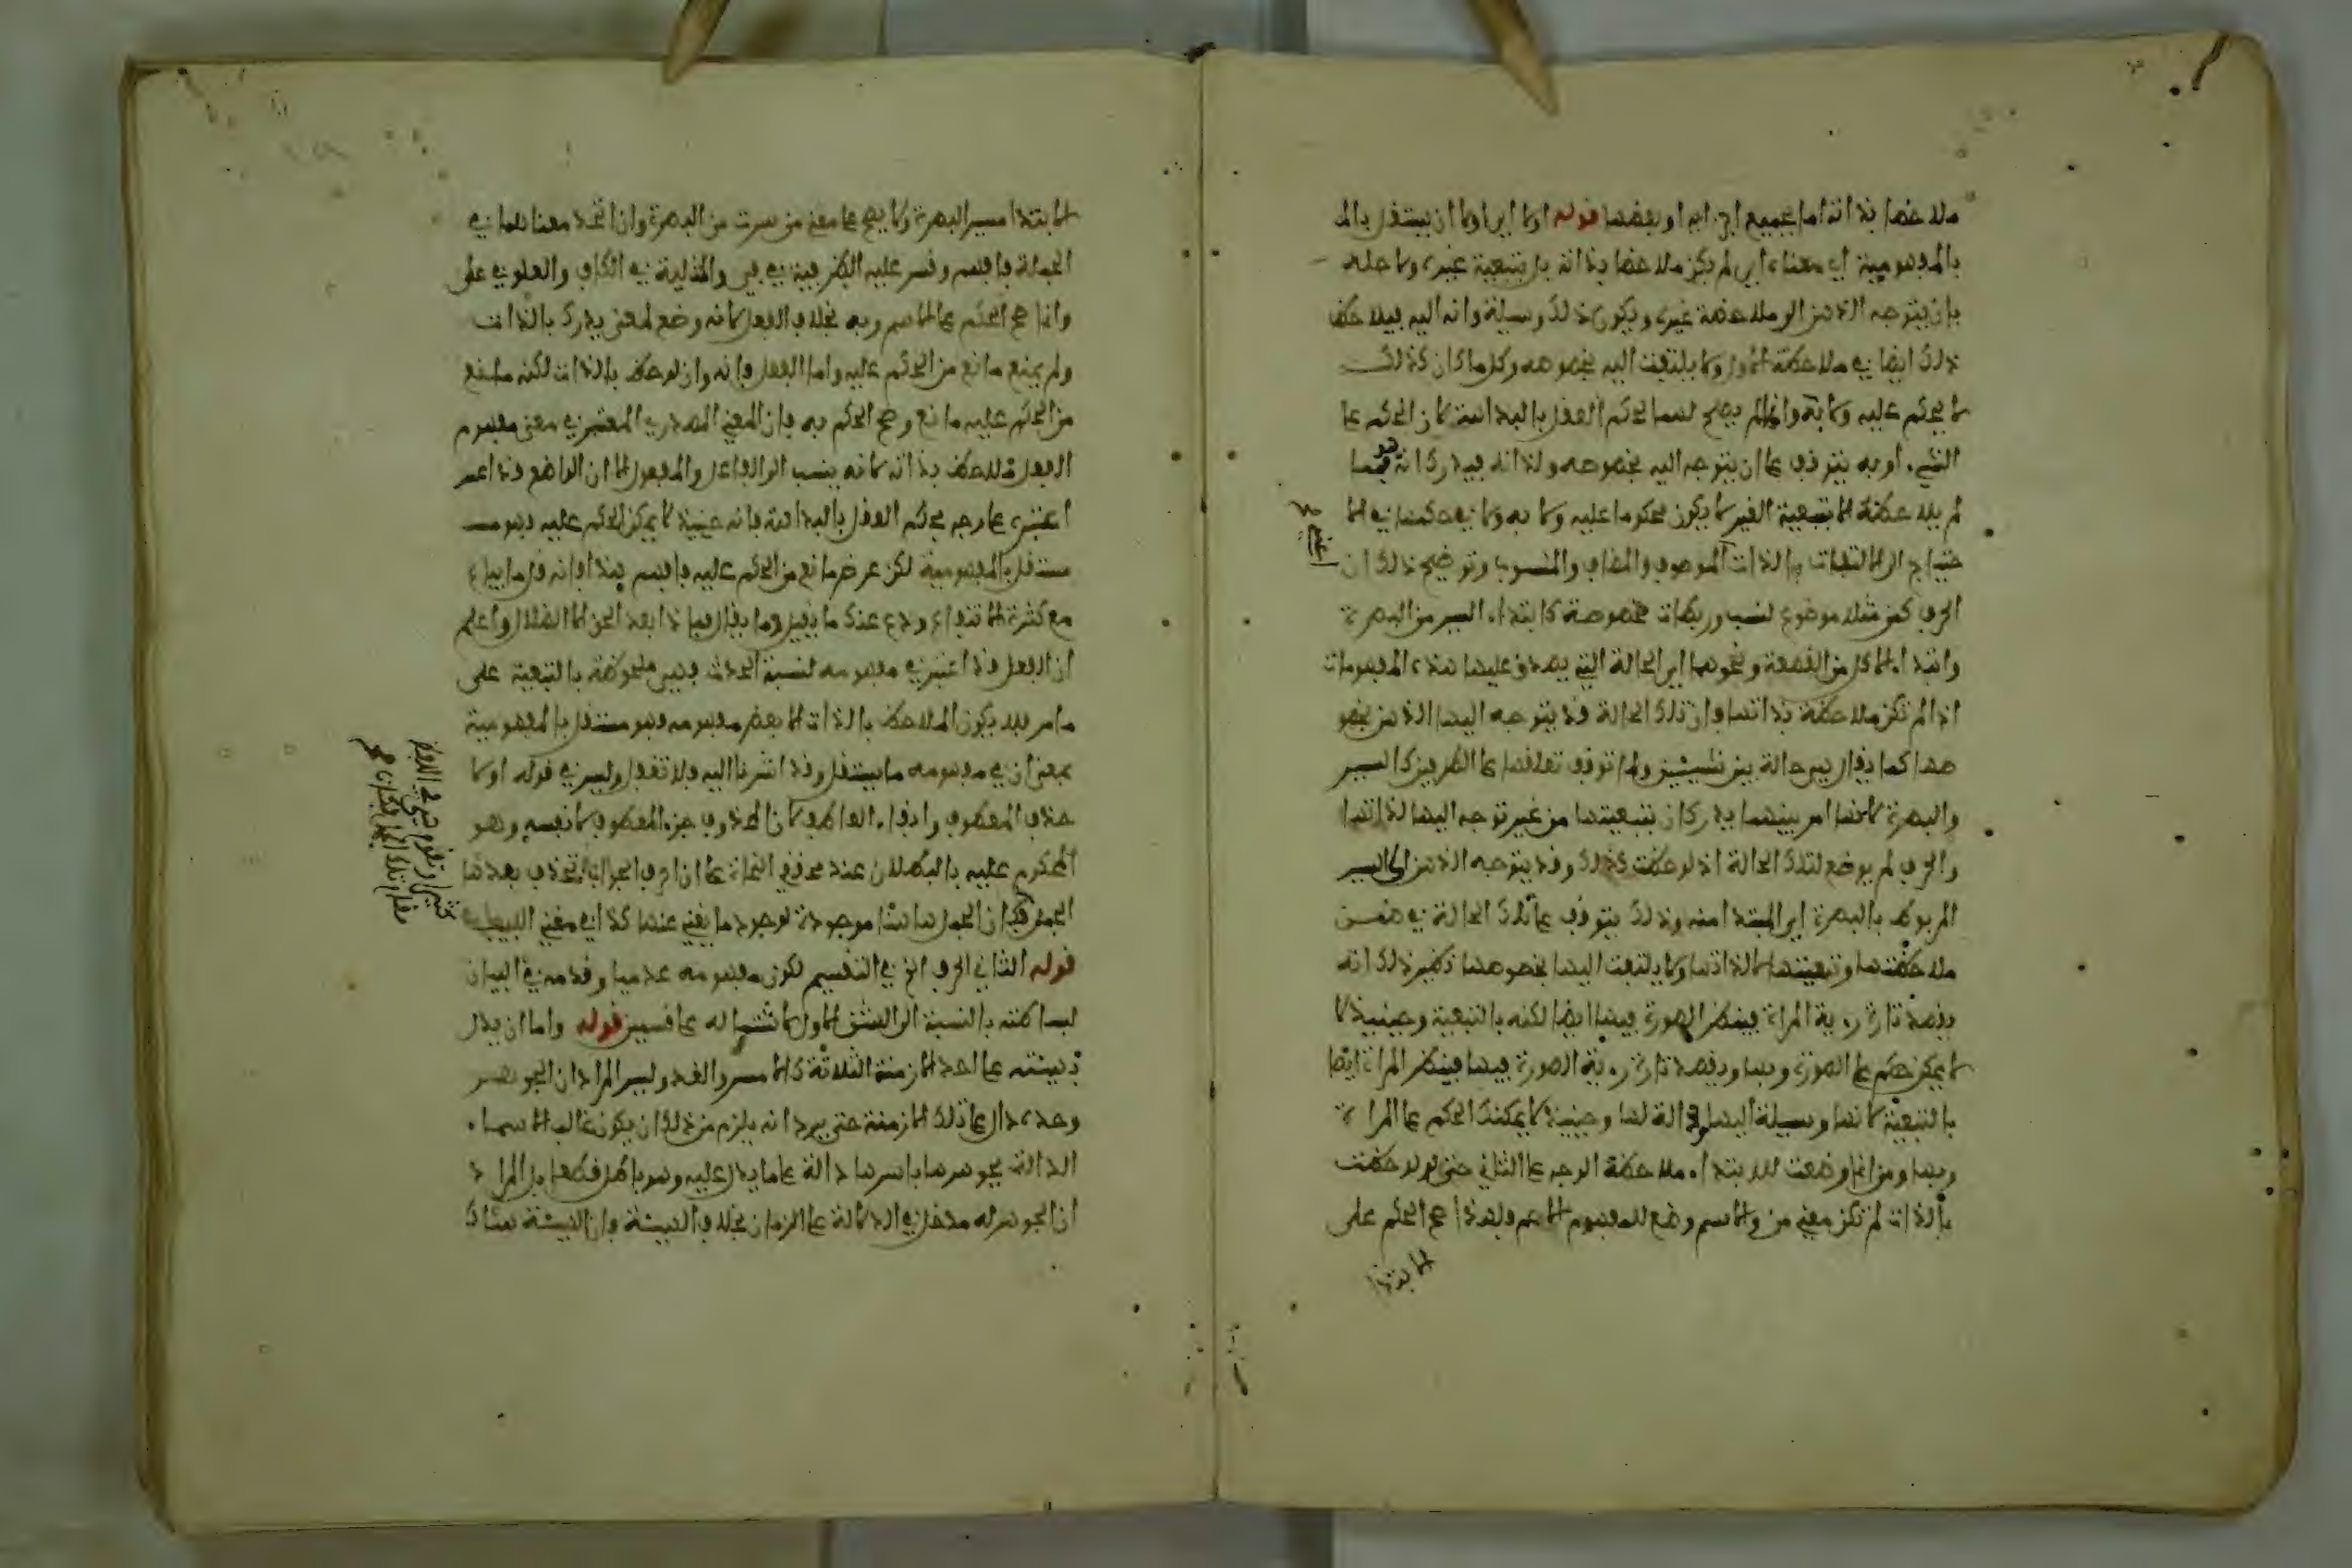 ملاحظا بذاته اما بجميع اجزائه او بعضها قوله اولا اي او لا ان يستقل بالم
بالمفهومية اي معناه اي لم يكن ملاحظا بذاته بل بتبعية غيره
بان يتوجه الذهن الى ملاحظة غيره ويكون ذلك وسيلة وانه اليه فيلاحظ
ذلك ايضا في ملاحظة الاول ولا يلتفت اليه بخصوصه وكل ما كان كذلك
لا يحكم عليه ولا به وانما لم يصلح لهما لحكم العقل بالبداهة لان الحكم على
الشيء او به يتوقف على ان يتوجه اليه بخصوصه ولذاته فيدرك انه هو فما
لم يلاحظ الا بتبعية الغير لا يكون محكوما عليه ولا به ولا في حكمهما في الا
حتياج الى الالتفات بالذات الموصوف والمضاف والمنسوب وتوضيح ذلك ان
الحرف كمن مثلا موضوع لنسب وربطات مخصوصة كابتداء السير من البصرة
وابتداء الاكل من القصعة ونحوهما اي الحالة التي يصدق عليها هذه المفهومات
اذا لم تكن ملاحظة بذاتها فان تلك الحالة قد يتوجه اليها الذهن بخصو
صها كما يقال هي حالة بين شيئين ولها توقف تعلقها على الطرفين كالسير
والبصرة لانها امر بينهما يدركان بتبعيتها من غير توجه اليها لذاتها
والحرف لم يوضع لتلك الحالة اذا لوحظت كذلك وقد يتوجه الذهن الى السير
المربوط بالبصرة اي المبتدا منه وذلك يتوقف على تلك الحالة في ضمن
ملاحظتها وتبعيتها لا لذاتها ولا يلتفت اليها بخصوصها نظير ذلك انه
يقصد تارة رؤية المراة فينظر الصورة فيها ايضا لكنه بالتبعية وحينئذ لا
لا يمكن حكم على الصورة وبها ويقصد تارة رؤية الصورة فيها فينظر المراة ايضا
بالتبعية لانها وسيلة اليها والة لها وحينئذ لا يمكنك الحكم على المراة
وبها ومن انما وضعت للابتداء ملاحظة الوجه على الثاني حتى لو لاحظت
بالذات لم تكن معنى من والاسم وضع للمفهوم الاعم ولهذا صح الحكم على
الابتدا
الابتداء مسير البصرة ولا يصح على معنى من سرت من البصرة وان اتحد معناهما في
الجملة فافهم وقس عليه الظرفية في في والمثلية في الكاف والعلو في على
وانما صح الحكم على الاسم وبه بخلاف الفعل لانه وضع لمعنى يدرك بالذات
ولم يمنع مانع من الحكم عليه واما الفعل فانه وان لوحظ بالذات لكنه منع
من الحكم عليه مانع وصح الحكم به فان المعنى المصدري المعتبر في معنى مفهوم
الفعل ملاحظ بذاته لانه ينسب الى الفاعل والمفعول الا ان الواضع قد اعتبر
اعتبره على وجه يحكم العقل بالبداهة فانه حينئذ لا يمكن الحكم عليه فهو مست
مستقل بالمفهومية لكن عرض مانع من الحكم عليه فافهم هذا فانه قل ما يباع
مع كثرة الانتفاع ودع عنك ما يقيل وما يقال فماذا بعد الحق الا الضلال واعلم
ان الفعل قد اعتبر في مفهومه لنسبة الحدث فهي ملحوظة بالتبعية على
ما مر فلا يكون الملاحظ بالذات الا بعض مفهومه فهو مستقل بالمفهومية
بمعنى ان في مفهومه ما يستقل وقد اشرنا اليه فلا تغفل وليس في قوله اولا
حذف المعطوف وابقاء العاطف لان المحذوف جزء المعطوف لا نفسه وهو
المحكوم عليه بالبطلان عند محققي النحاة على ان احرف الجواب تحذف بعدها
الجمل فكان الجمل هاهنا موجودة لوجود ما يغني عنها كذا في مغني اللبيب
قوله الثاني الحرف اخره في التقسيم لكون مفهومه عدميا وقدمه في البيان
لبساطته بالنسبة الى الشق الاول لاشتماله على قسمين قوله واما ان يدل
بهيئته على احد الازمنة الثلاثة كالامس والغد وليس المراد ان الجوهر
وحده دال على تلك الازمنة حتى يرد انه يلزم من ذلك ان يكون غالب الاسماء
الدالة بجوهرها باسرها دالة على ما يدل عليه وهو باطل قطعا بل المراد
ان الجوهر له مدخل في الدلالة على الزمان بخلاف الهيئة فان الهيئة هناك